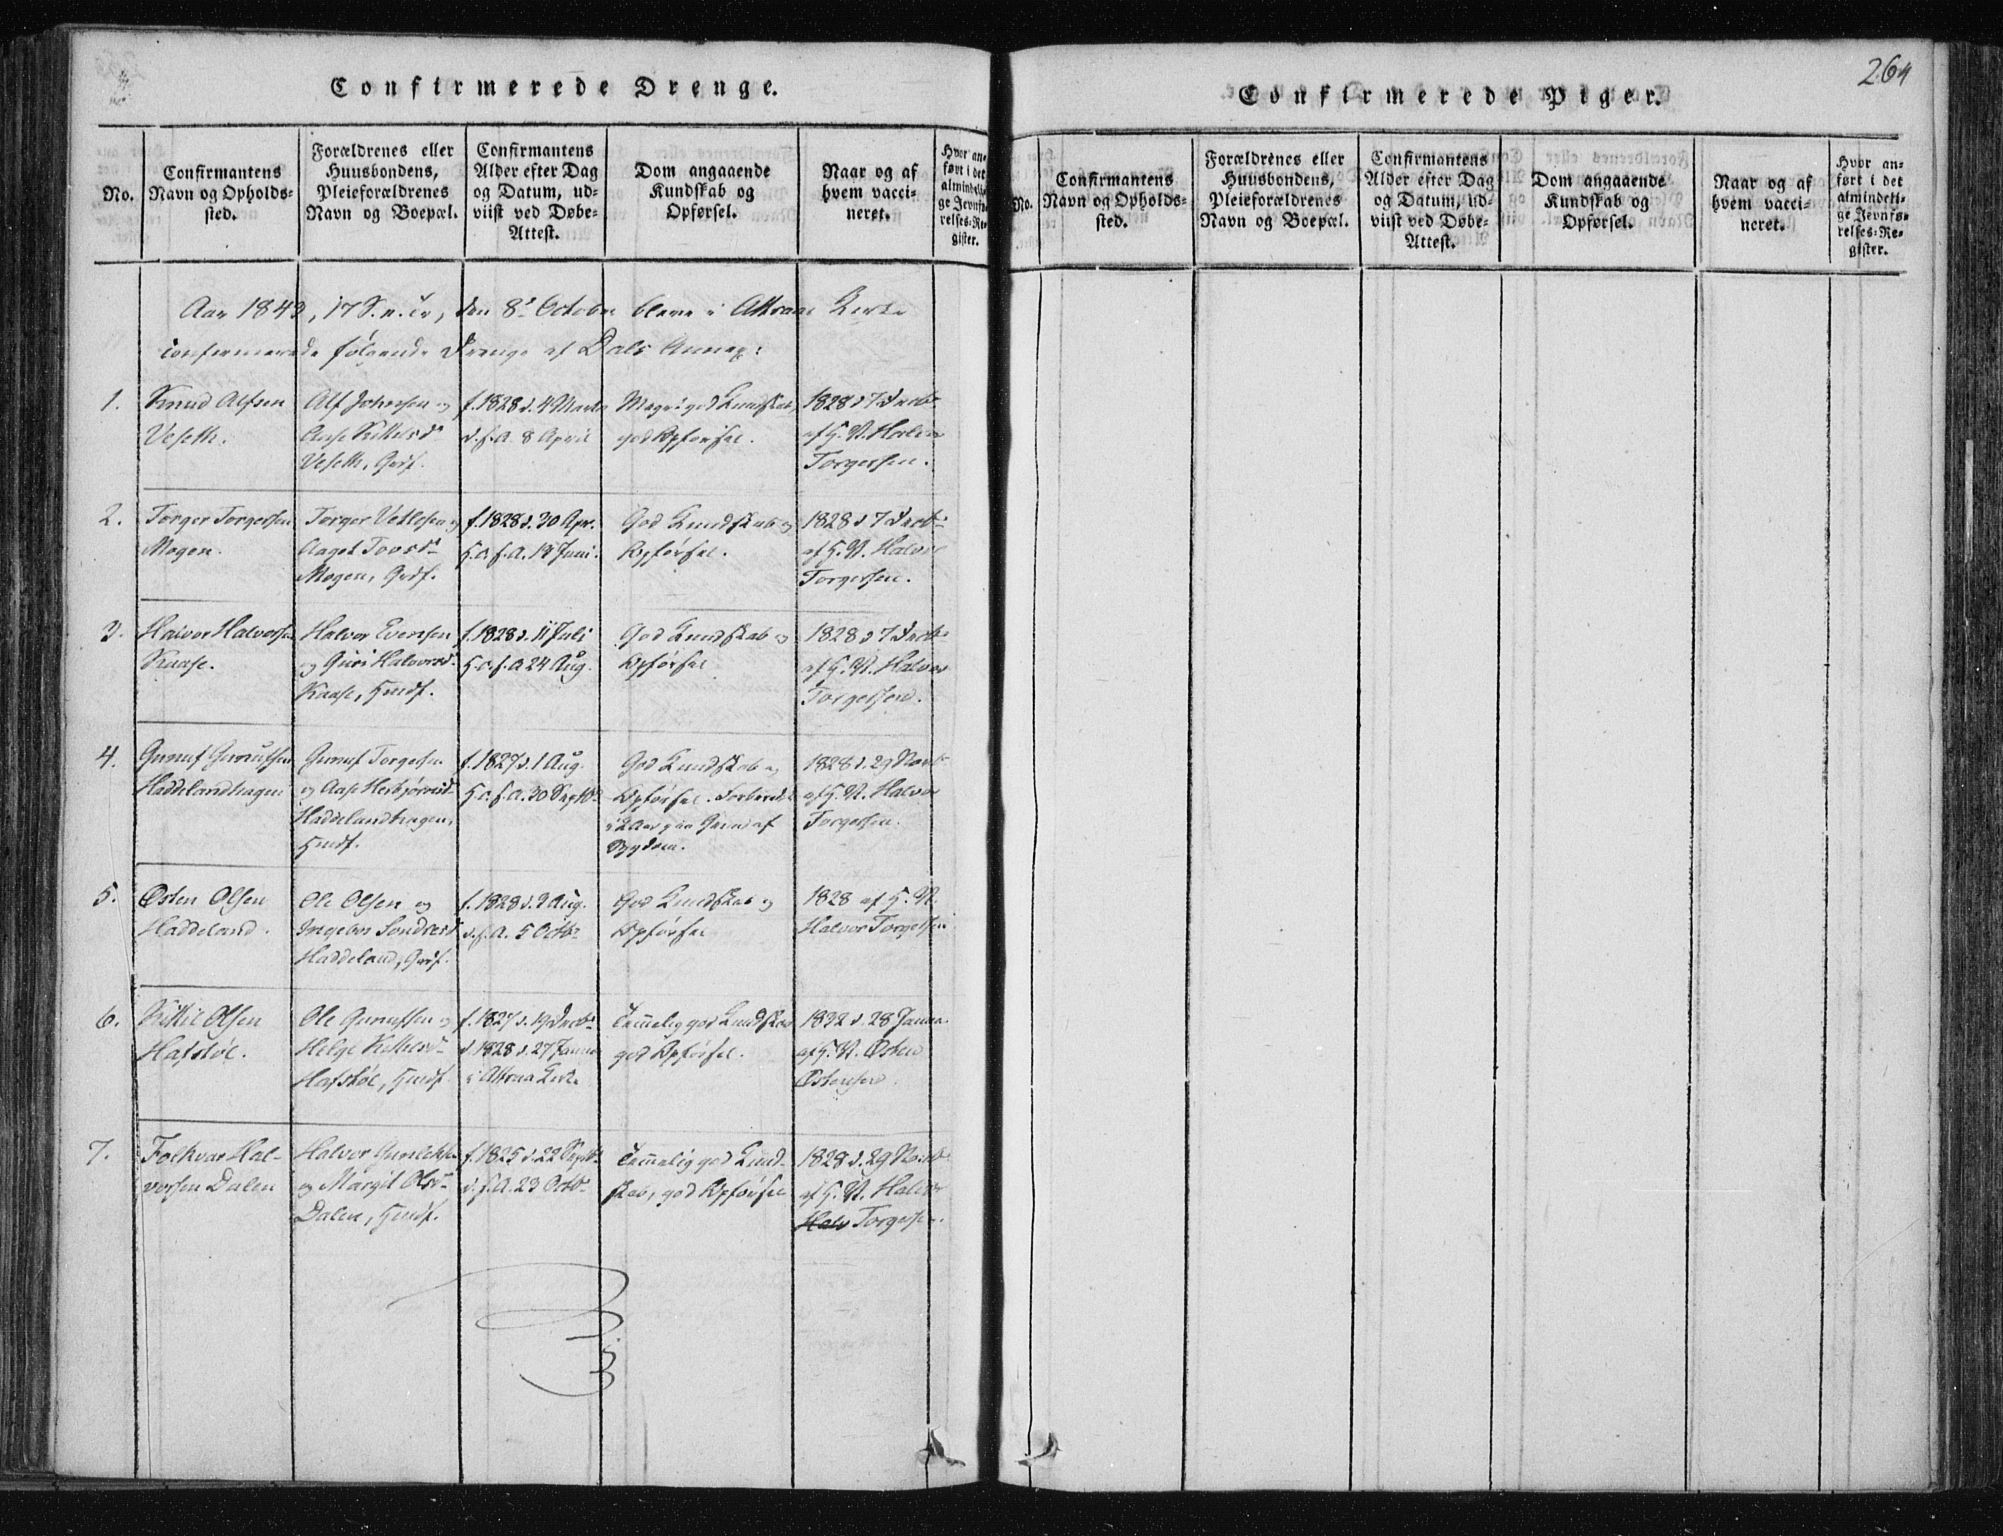 Confirmerede Drenge.
No.
Confirmantens
Navn og Opholds-
sted.
Forældrenes eller
Huusbondens,
Pleieforældrenes
Navn og Boepæl.
Confirmantens
Alder efter Dag
og Datum, ud-
viist ved Døbe-
Attest.
Dom angaaende
Kundskab og
Opførsel.
Naar og af
hvem vacci-
neret.
Hvor an-
ført i det
almindeli-
ge Jevnfø-
relses-Re-
gister.
Aar 1843, 17 S. e. Tr, den 8de October bleve i Attraae Kirke
confirmerede følgende Drenge af Dals Annex:
1.
Knud Alfsen
Veseth.
Alf Johnsen og
Aase Kittelsd
Veseth, Grdf.
f. 1828 d. 4 Marts
d. s. A. 8 April
Meget god Kundskab,
god Opførsel.
1828 d 7 Decbr
af H. N. Halvor
Torgersen.
2.
Torger Torgersen
Mogen.
Torger Vetlesen og
Aaget Tovsd
Mogen, Grdf.
f. 1828 d. 30 Apr.
s. A. 13 Juni.
God Kundskab og
Opførsel.
1828 d 7 Decbr
af H. N. Halvor
Torgersen.
3.
Halvor Halvorsen
Kaase.
Halvor Evensen
og Guri Halvorsd
Kaase, Hmdf.
f. 1828 d. 11 Juli
s. A. 24 Aug.
God Kundskab og
Opførsel
1828 d 7 Decbr
af H. N. Halvor
Torgersen.
4.
Gunuf Gunufsen
Haddelandhagen
Gunuf Torgersen
og Aase Herbjørnsd
Haddelandhagen,
Hmdf.
f. 1827 d. 1 Aug.
s. A. 30 Septbr
God Kundskab og
Opførsel. Forberedet
i 2 Aar paa Grund af
Sygdom.
1828 d. 29 Novbr
af H. N. Halvor
Torgersen.
5.
Østen Olsen
Haddeland.
Ole Olsen og
Ingebor Sondresd
Haddeland, Grdf.
f. 1828 d. 2 Aug.
d. s. A. 5 Octbr
God Kundskab og
Opførsel
1828 af H. N.
Halvor Torgersen
6.
Kittil Olsen
Hafstøl.
Ole Gunufsen og
Helge Kittilsd
Hafstøl, Hmdf.
f. 1827 d. 19 Decbr
d. 1828 d. 27 Januar
i Attraa Kirke
Temmelig god Kundskab
god Opførsel.
1832 d. 28 Januar
af H. N. Østen
Østensen.
7.
Folkvar Hal-
vorsen Dalen
Halvor Gunleiksen
og Margit Olsd
Dalen, Hmdf.
f. 1825 d. 22 Septbr
d. s. A. 23 Octbr
Temmelig god Kund-
skab, god Opførsel
1828 d. 29 Novbr
af H. N. Halvor
Halv Torgersen.
264
Confirmerede Piger.
No.
Confirmantens
Navn og Opholds-
sted.
Forældrenes eller
Huusbondens,
Pleieforældrenes
Navn og Boepæl.
Confirmantens
Alder efter Dag
og Datum, ud-
viist ved Døbe-
Attest.
Dom angaaende
Kundskab og
Opførsel.
Naar og af
hvem vacci-
neret.
Hvor an-
ført i det
almindeli-
ge Jevnfø-
relses-Re-
gister.